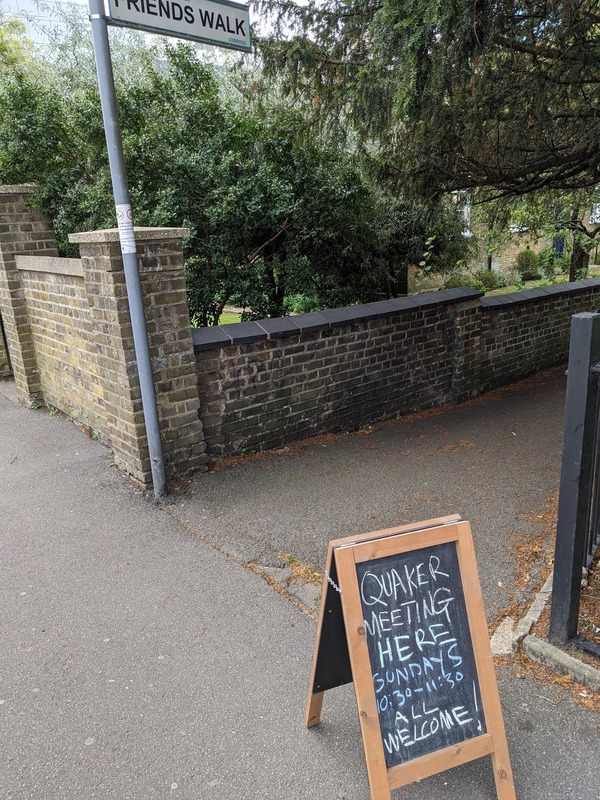 FRIENDS WALK
QUAKER
MEETING
HERE
SUNDAYS
10:30-11:30
ALL
WELCOME!